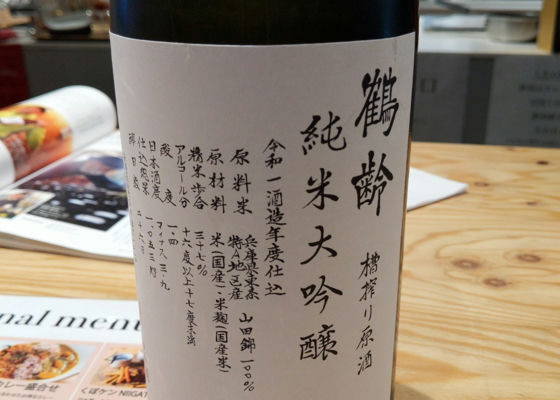 鶴齢
純米大吟醸
槽搾り原酒
令和一酒造年度仕込
原料米 兵庫県東条
特A地区産 山田錦一〇〇%
原材料 米(国産)・米麹(国産米)
精米歩合 三十七%
アルコール分 十六度以上十七度未満
酸度 一.四
日本酒度 マイナス三.九
nal menu
カレー盛合せ
くぼケン NIIGAT